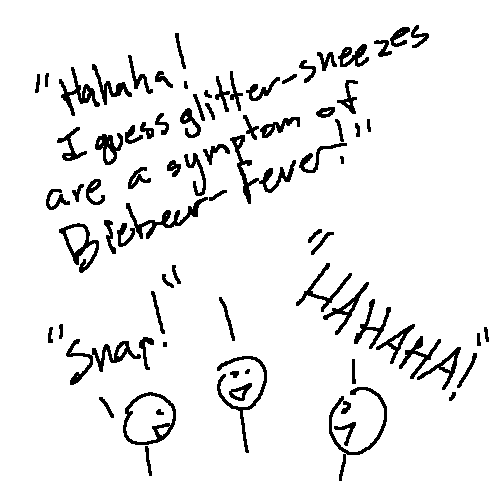 "Hahaha!
I guess glitter-sneezes
are a symptom of
Bieber-Fever!"
"Snap!"
"HAHAHA!"